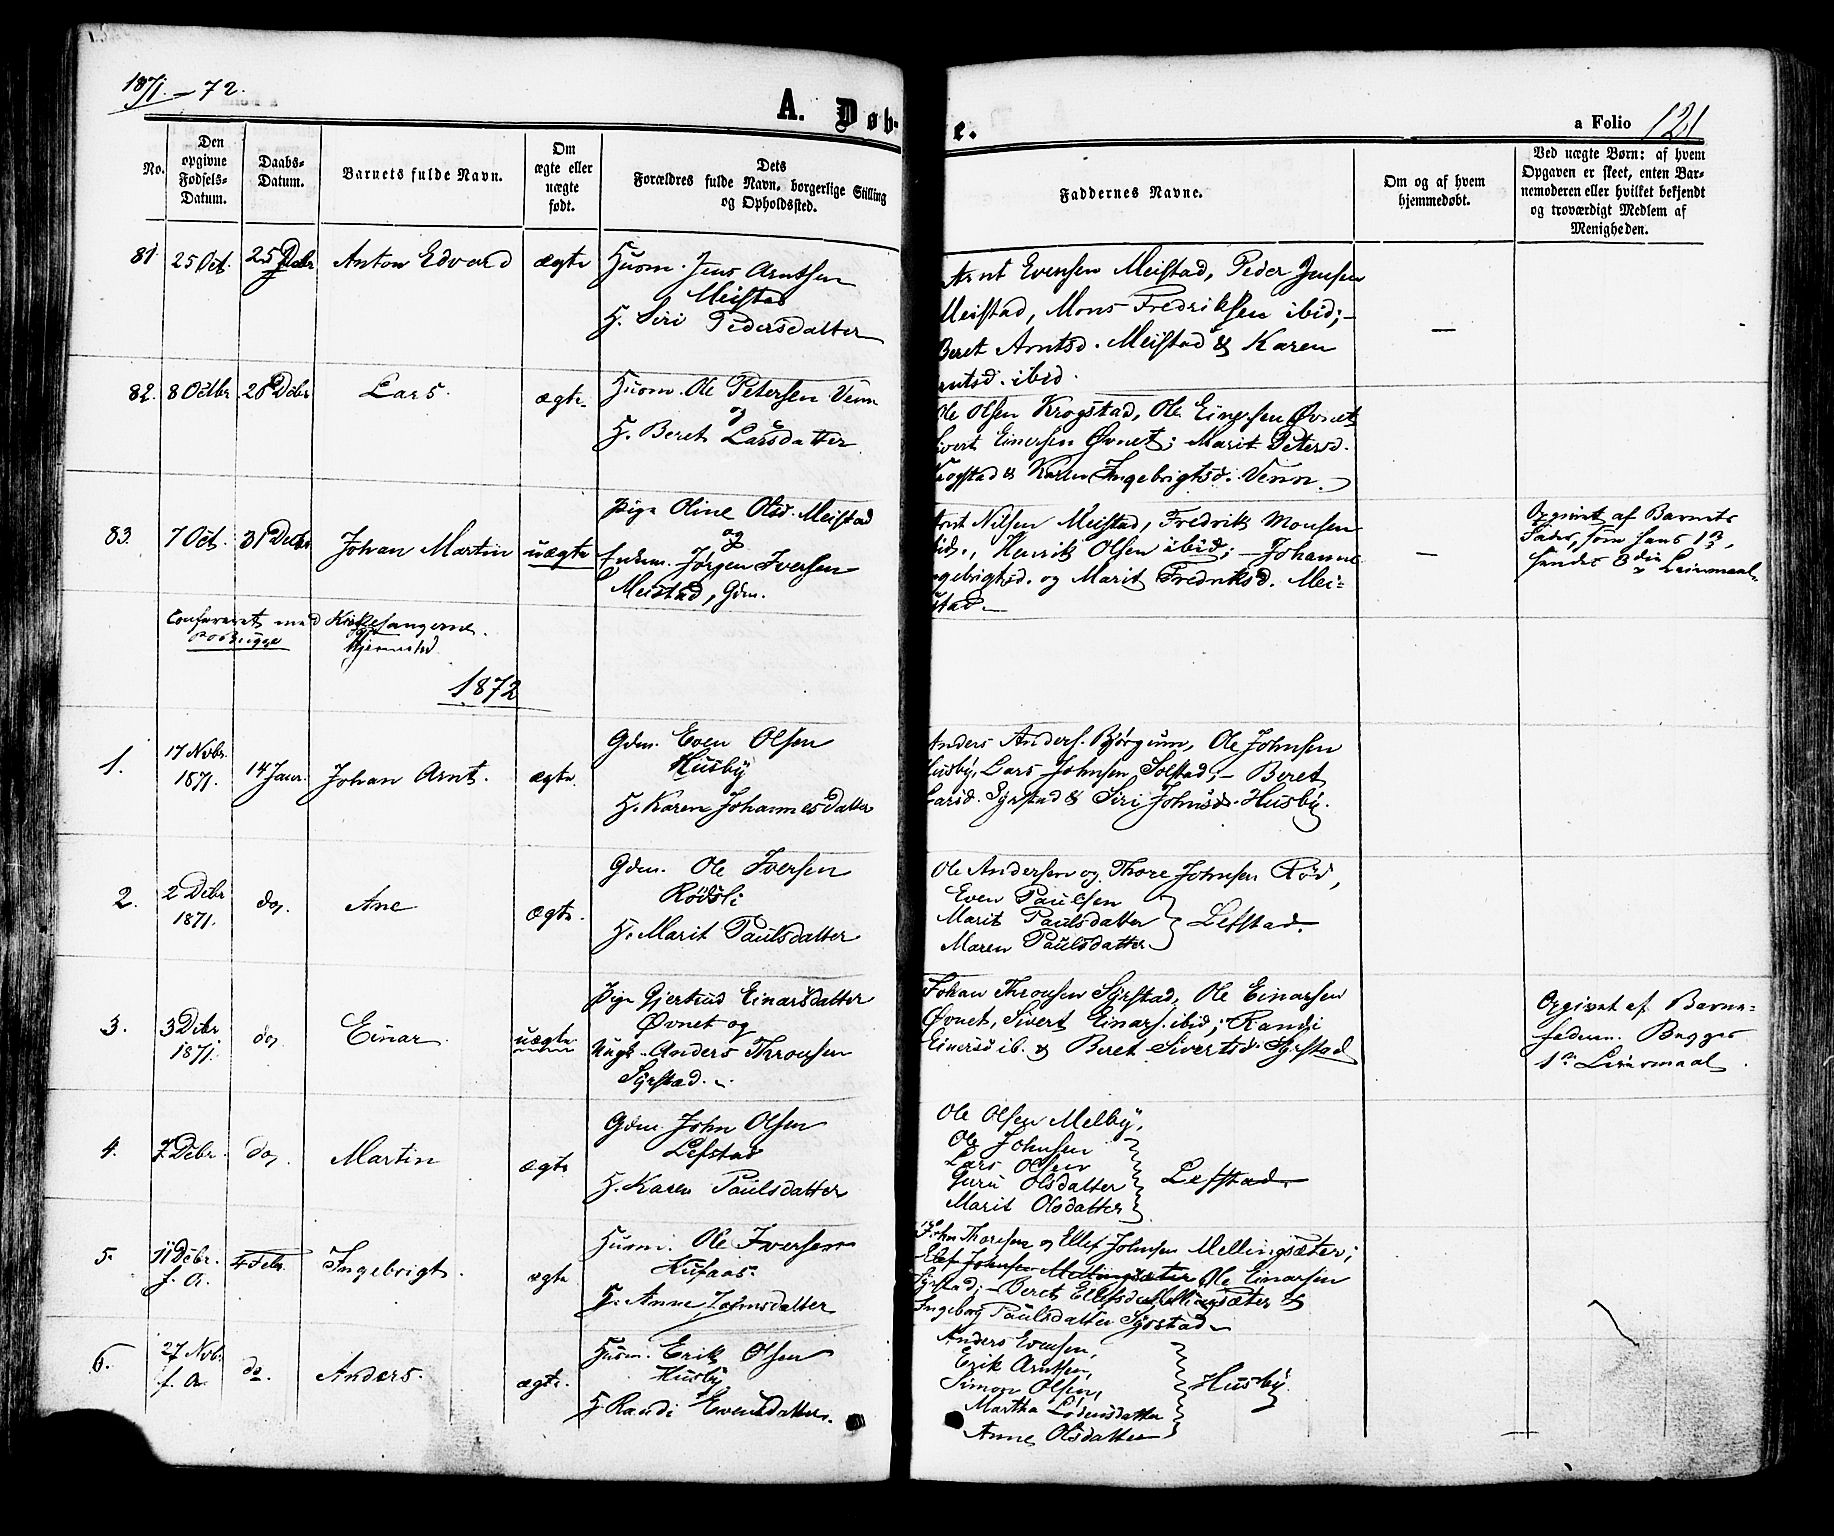 1871. - 72.
A. Døb-
e.
a Folio 121
No.
Den opgivne Fødsels-Datum.
Daabs-Datum.
Barnets fulde Navn.
Om ægte eller uægte født.
Dets Forældres fulde Navn, borgerlige Stilling og Opholdssted.
Faddernes Navne.
Om og af hvem hjemmedøbt.
Ved uægte Børn: af hvem Opgaven er skeet, enten Bar-nemoderen eller hvilket bekjendt og troværdigt Medlem af Menigheden.
81 25 Oct. 25 Decbr Anton Edvard ægte
Huusm. Jens Arntsen
Meistad
H. Siri Pedersdatter
Arnt Evensen Meistad, Peder Jensen
Meistad, Mons Fredriksen ibid; -
Beret Arntsd. Meistad & Karen
Arntsd. ibid.
—
82. 8 Octbr 26 Decbr Lars. ægte
Huusm. Ole Petersen Venn
og
H. Beret Larsdatter
Ole Olsen Krogstad, Ole Einersen Øvnet
Sivert Einersen Øvnet; Marit Petersd.
Krogstad & Karen Ingebrigtsd. Venn.
83. 7 Oct. 31 Decbr Johan Martin uægte
Pige Oline Olsd. Meistad
og
Enkem. Jørgen Iversen
Meistad, Gdm.
Arnt Nilsen Meistad, Fredrik Monsen
ibid., Henrik Olsen ibid; - Johanne
Ingebrigtsd. og Marit Fredriksd. Mei=
stad
—
Opgivet af Barnets
Fader, som hans 1ste,
hendes 3die Leiermaal
Confereret med Kirkesangerne
Rosbugge og Hjemstad
1872
1. 17 Novbr 1871. 14 Janr. Johan Arnt. ægte
Gdm. Even Olsen
Husby
H. Karen Johannesdatter
Anders Anders. Bjørgum, Ole Johnsen
Husby, Lars Johnsen Solstad, - Beret
Larsd. Syrstad & Siri Johnsd. Husby.
2. 2 Decbr 1871. do. Ane ægte
Gdm. Ole Iversen
Rødsli
H. Marit Paulsdatter
Ole Andersen og Thore Johnsen Rød,
Even Paulsen
Marit Paulsdatter
Maren Paulsdatter
Lefstad.
3. 3 Decbr 1871. do. Einar uægte
Pige Gjertrud Einarsdatter
Øvnet og
Ungk. Anders Thronsen
Syrstad.
Johan Thronsen Syrstad, Ole Einarsen
Øvnet, Sivert Einars. ibid; Randi
Einersd ib. & Beret Sivertsd. Syrstad
Opgivet af Barne-
faderen. Begges
1ste Leiermaal
4. 7 Decbr. do. Martin ægte
Gdm. John Olsen
Lefstad
H. Karen Paulsdatter
Ole Olsen Melby,
Ole Johnsen
Lars Olsen
Guru Olsdatter
Marit Olsdatter
Lefstad.
5. 11 Decbr. f. A. 4 Febr. Ingebrigt. ægte
Huusm. Ole Iversen
Hufaas.
H. Anne Johnsdatter
John Thoresen og Ellef Johnsen Mellingsæter;
Ellef Johnsen Mellingsæter, Ole Einarsen
Syrstad; - Beret Ellefsd. Mellingsæter &
Ingeborg Paulsdatter Syrstad
6. 27 Novb. f. A. do. Anders. ægte.
Huusm. Erik Olsen
Husby
H. Randi Evensdatter.
Anders Evensen,
Erik Arntsen,
Simon Olsen,
Martha Lodensdatter
Anne Olsdatter
Husby.